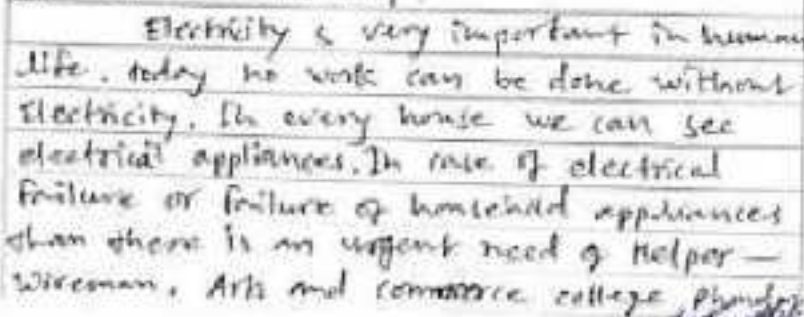 Electricity is very important in human
life. today no work can be done without
Electricity. In every house we can see
electrical appliances. In case of electrical
Failure or failure of household appliances
than there is an urgent need of Helper —
Wireman. Arts and commerce college